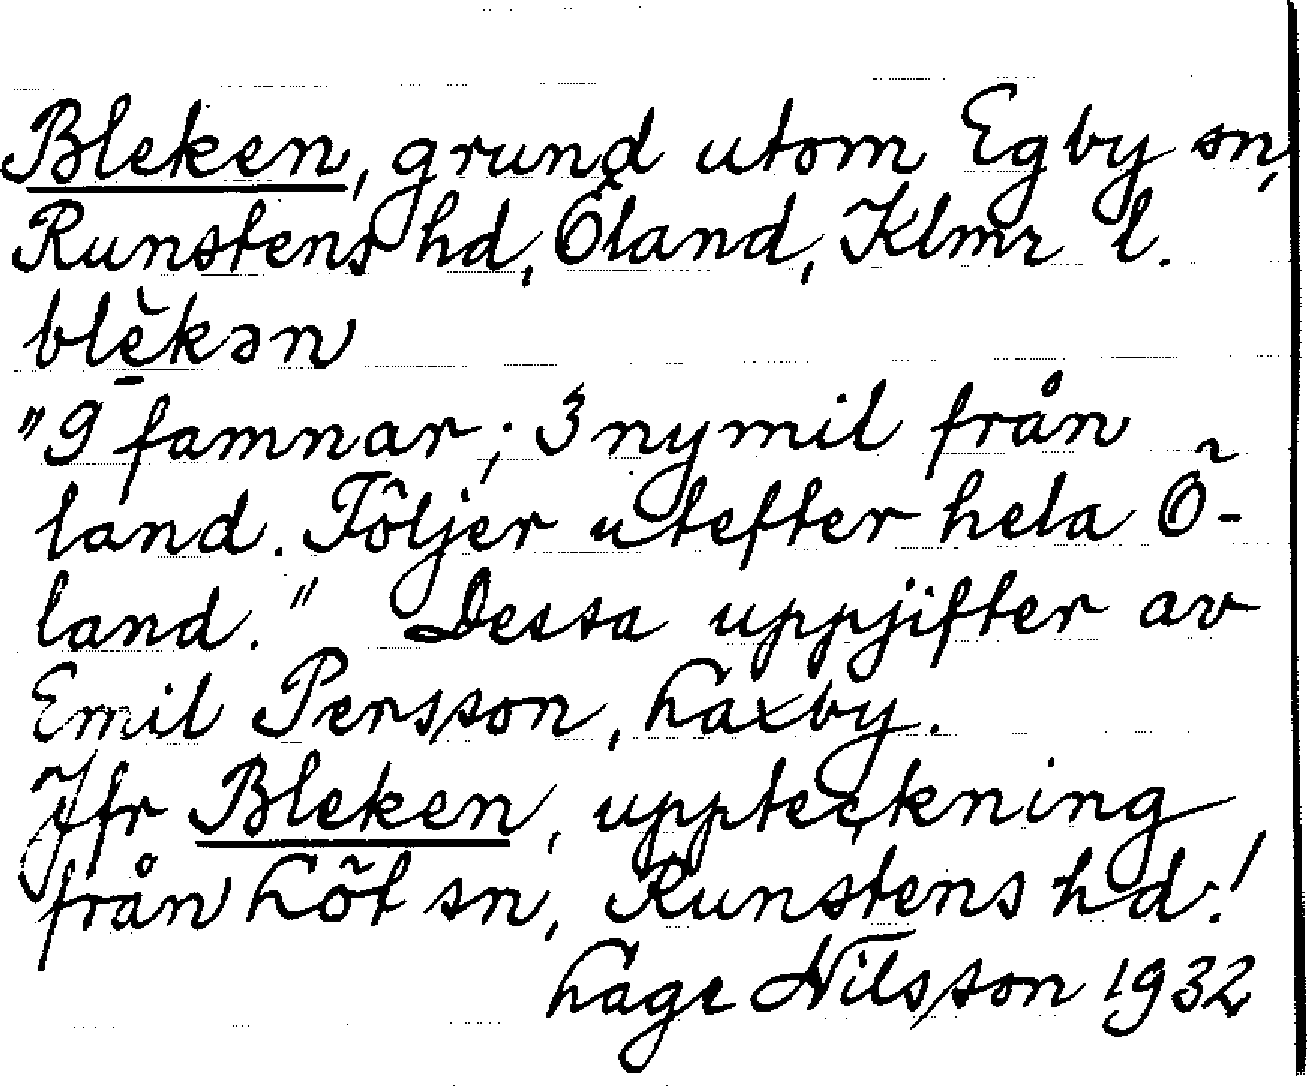 Bleken, grund utom Egby sn,
Runstens hd, Öland, Klmr l.
blèkən
"9 famnar; 3 nymil från
land. Följer utefter hela Ö-
land." Dessa uppjifter av
Emil Persson, Laxby.
Jfr Bleken, uppteckning
från Löt sn, Runstens hd.!
Lage Nilsson 1932